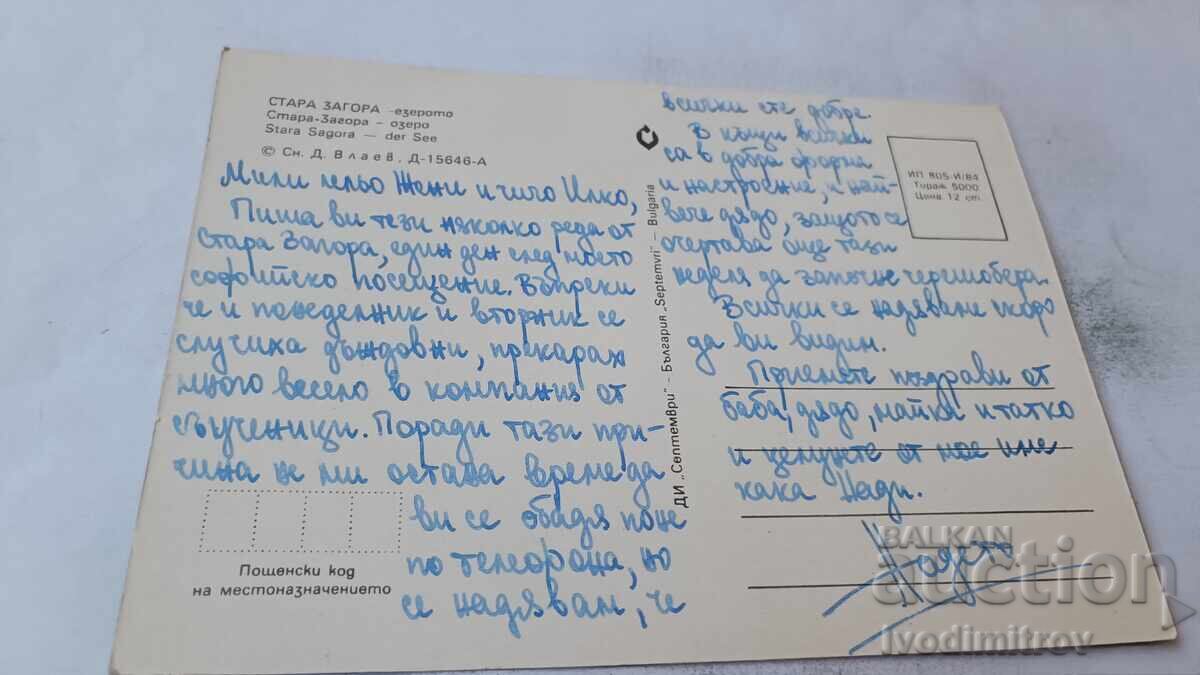 СТАРА ЗАГОРА - езерото
Стара-Загора - озеро
Stara Sagora — der See
© Сн. Д. Влаев, Д-15646-А
Мили лельо Жени и чичо Илко,
Пиша ви тези няколко реда от
Стара Загора, един ден след моето
софийско посещение. Въпреки
че и понеделник и вторник се
случиха дъждовни, прекарах
много весело в компания от
съученици. Поради тази при-
чина не ми остава време да
ви се обадя поне
по телефона, но
се надявам, че
Пощенски код
на местоназначението
ДИ „Септември" – България „Septemvri" – Bulgaria
всички сте добре.
В къщи всички
са в добра форма
и настроение, и най-
вече дядо, защото се
очертава още тази
неделя да започне черешобера.
Всички се надяваме скоро
да ви видим.
Приемете поздрави от
баба, дядо, майка и татко
и целунете от мое име
кака Нади.
ИП 805-И/84
Тираж 5000
Цена 12 ст.
BALKAN
auction
ivodimitrov